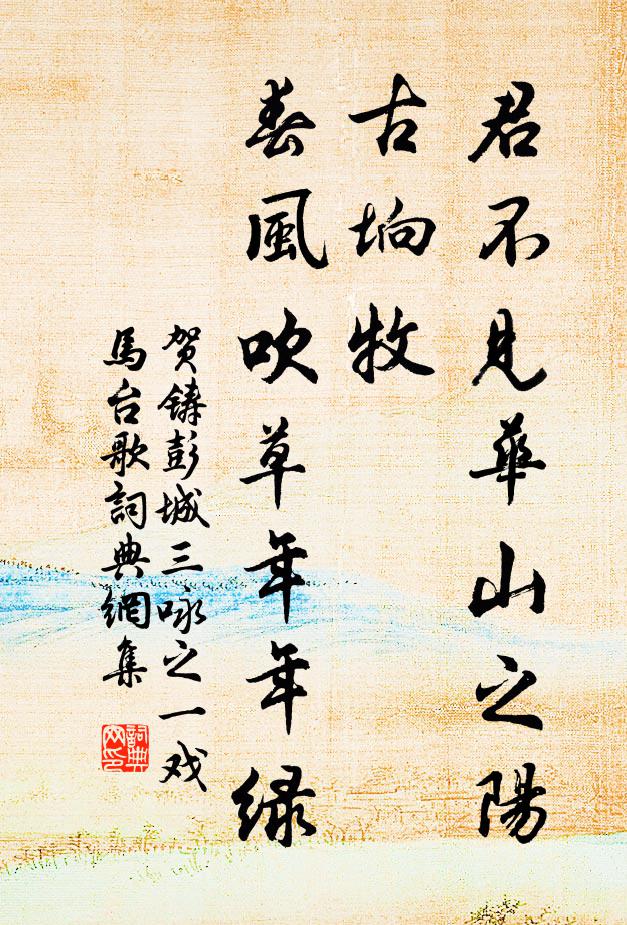 君不见華山之陽
古坰牧
春風吹草年年绿
贺铸彭城三咏之一戏
馬台歌詞典網集
詞典
网印